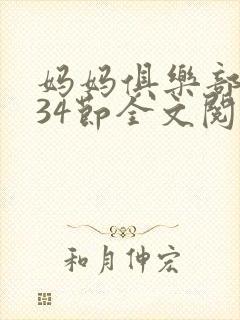 妈妈俱樂部
34节全文閱
和月伸宏